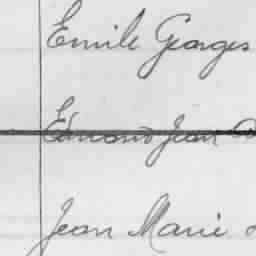 Emile Georges
Edmond Jean
Jean Marie